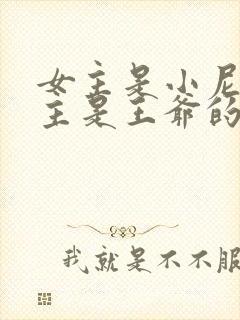 女主是小尼
主是王爷的
我就是不不服